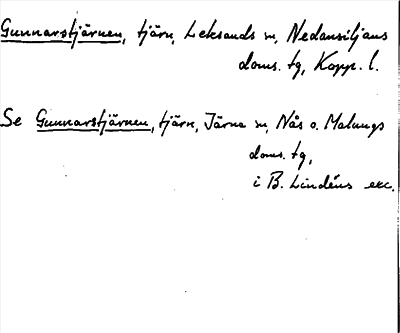 Gunnarstjärnen, tjärn, Leksands sn, Nedansiljans
doms. tg, Kopp. l.
Se Gunnarstjärnen, tjärn, Järna sn, Nås o. Malungs
doms. tg,
i B. Lindéns exc.